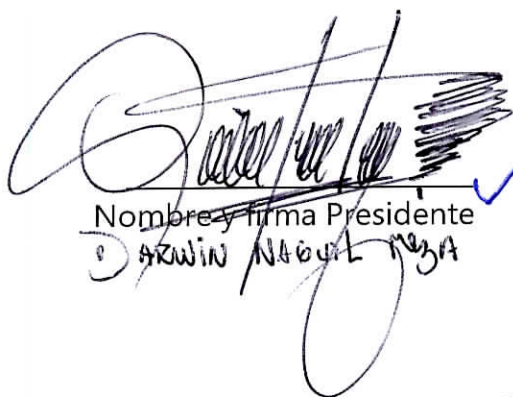 Nombre y firma Presidente
DARWIN NAGUIL MEZA